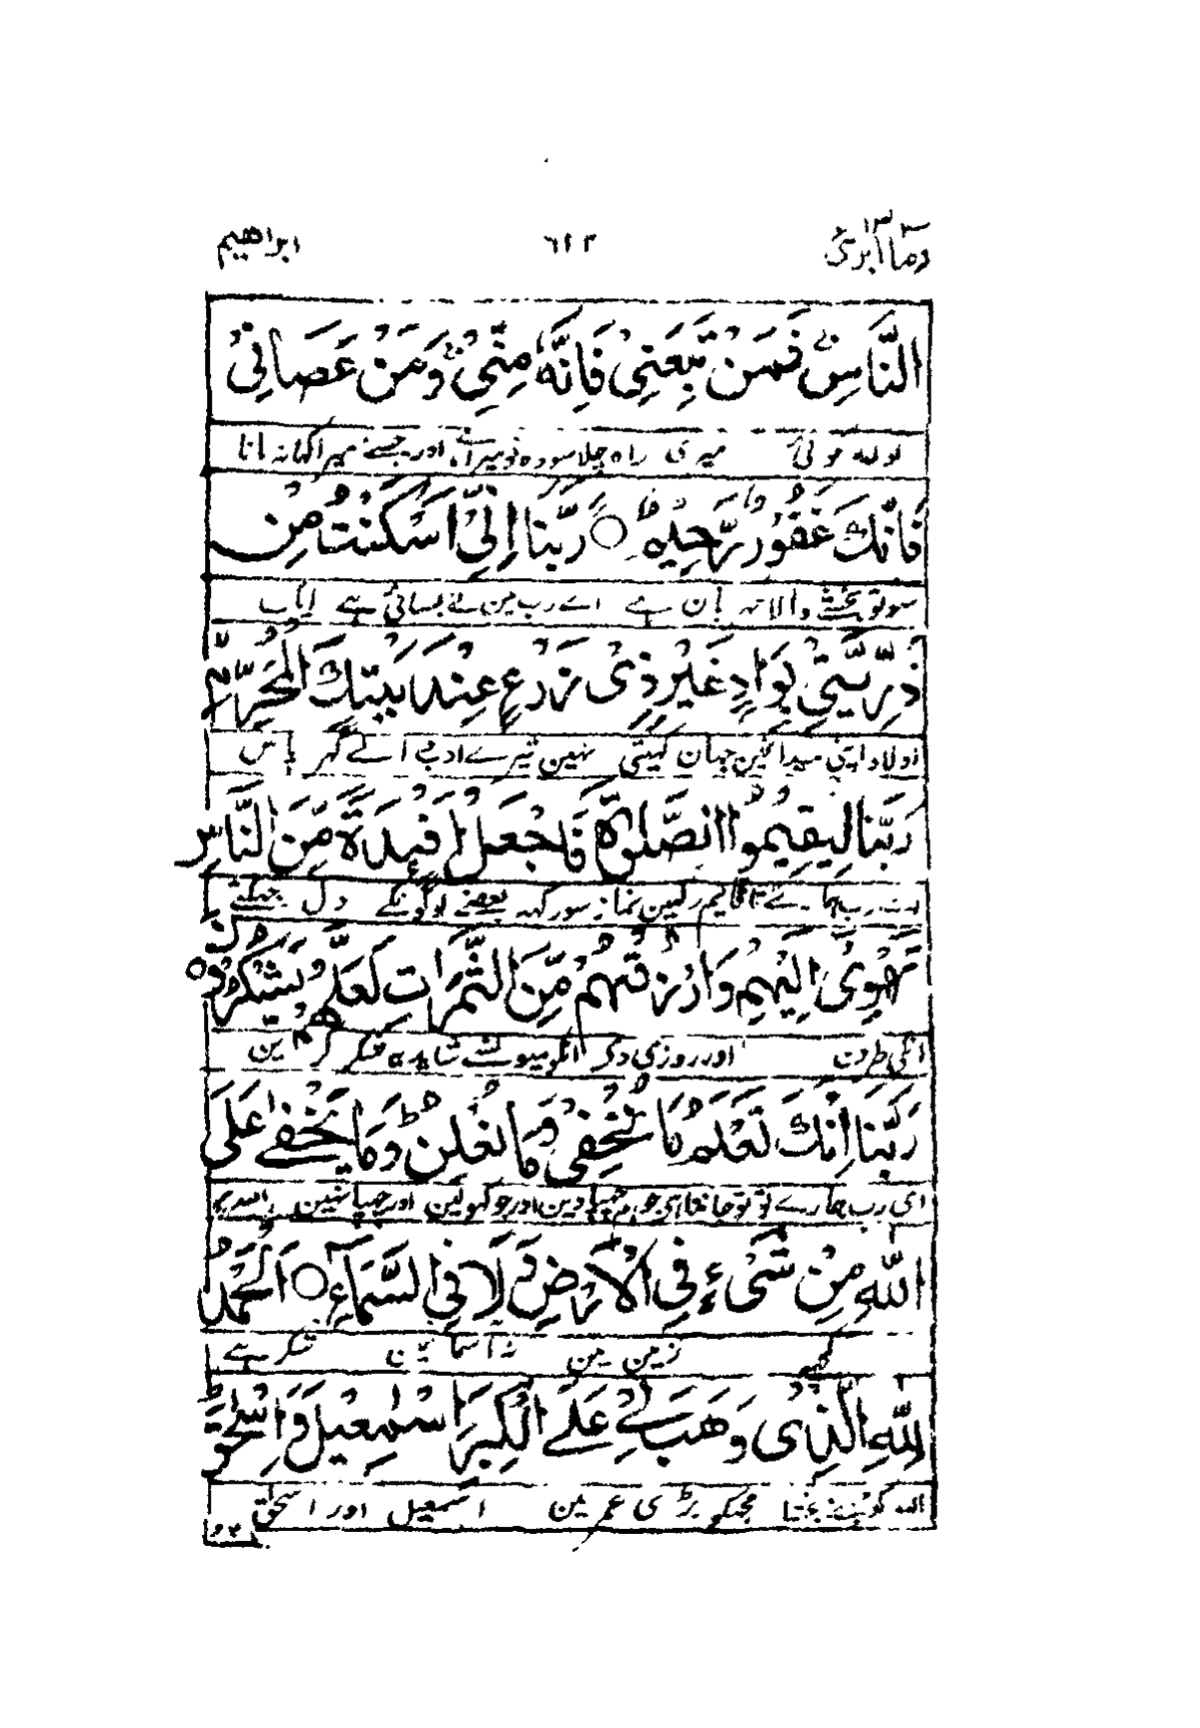 ومآ ابرئ ١٣ ٦٢٣ ابراهيم
النَّاسِ ۚ فَمَنْ تَبِعَنِیْ فَاِنَّهٗ مِنِّیْ ۚ وَمَنْ عَصَانِیْ
میری راہ چلا سو وہ تو میرا ہے اور جسنے میرا کہا نہ مانا
فَاِنَّكَ غَفُوْرٌ رَّحِیْمٌ ○ رَبَّنَا اِنِّیْ اَسْكَنْتُ مِنْ
سو تو بخشنے والا مہربان ہے اے رب مین نے بسائی ہے ایک
ذُرِّیَّتِیْ بِوَادٍ غَیْرِ ذِیْ زَرْعٍ عِنْدَ بَیْتِكَ الْمُحَرَّمِ
اولاد اپنی میدان مین جہان کہیتی نہین تیرے ادب والے گہر پاس
رَبَّنَا لِیُقِیْمُوا الصَّلٰوةَ فَاجْعَلْ اَفْئِدَةً مِّنَ النَّاسِ
اے رب ہمارے تا قایم رکہین نماز سو رکہہ بعضے لوگونکے دل جہکتے
تَهْوِیْٓ اِلَیْهِمْ وَارْزُقْهُمْ مِّنَ الثَّمَرَاتِ لَعَلَّهُمْ یَشْكُرُوْنَ ○
انکی طرف اور روزی دے انکو میوونسے شاید شکر کرین
رَبَّنَا اِنَّكَ تَعْلَمُ مَا نُخْفِیْ وَمَا نُعْلِنُ ؕ وَمَا یَخْفٰے عَلَی
ای رب ہمارے تو تو جانتا ہی جو ہم چہپا دین اور جو کہولین اور چہپا نہین اللہ پر
اللّٰهِ مِنْ شَیْءٍ فِی الْاَرْضِ وَلَا فِی السَّمَآءِ ○ اَلْحَمْدُ
کچہہ زمین مین نہ آسمان مین شکر ہے
لِلّٰهِ الَّذِیْ وَهَبَ لِیْ عَلَے الْكِبَرِ اِسْمٰعِیْلَ وَاِسْحٰقَ
اللہ کو جسنے بخشا مجہکو بڑی عمر مین اسمعیل اور اسحٰق